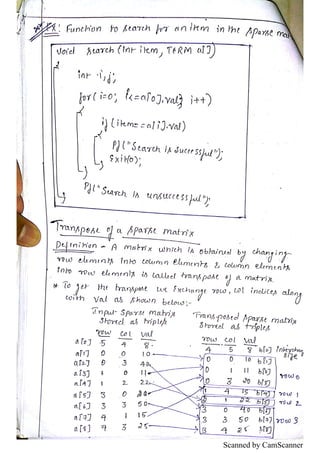 Ex: Function to search for an item in the sparse mat
Void Search (Int item, TERM a[])
{
int i,j;
for (i=0; i<=a[0].val; i++)
{
if (item==a[i].val)
{
Pf("Search is Successful");
Exit(0);
}
}
Pf("Search is unsuccessful");
}
Transpose of a sparse matrix
Definition - A matrix which is obtained by changing
row elements Into column elements & column elements
Into row elements is called transpose of a matrix.
* To get the transpose we Exchange row, col indices along
with val as shown below:-
Input Sparse matrix Transposed sparse matrix
Stored as triples Stored as triples
row col val row col val
a[0] 5 4 8 4 5 8 b[0]
a[1] 0 0 10 0 0 10 b[1]
a[2] 0 3 40 0 1 11 b[2] row 0
a[3] 1 0 11 0 3 20 b[3]
a[4] 1 2 22 1 4 15 b[4] row 1
a[5] 3 0 20 2 1 22 b[5] row 2
a[6] 3 3 50 3 0 40 b[6]
a[7] 4 1 15 3 3 50 b[7] row 3
a[8] 4 3 25 3 4 25 b[8]
Scanned by CamScanner